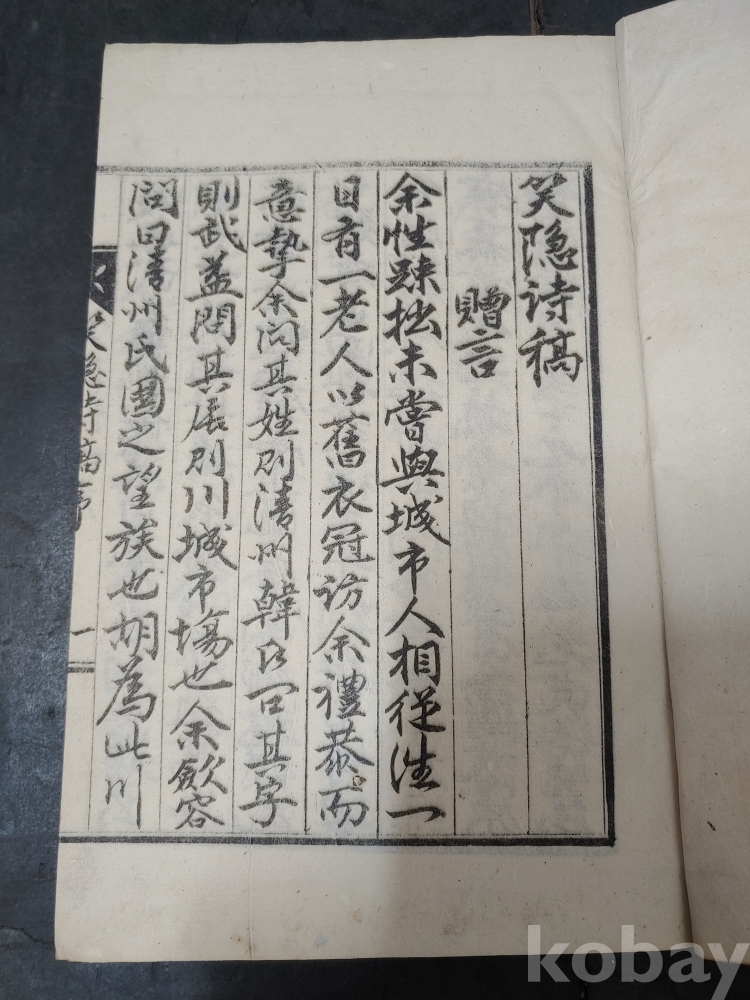 笑隐诗稿
贈言
余性踈拙未嘗與城市人相從往一
日有一老人以舊衣冠访余禮恭而
意摯余问其姓則清州韓氏曰其字
則武益問其居則川城市塲也余斂容
問曰清州氏國之望族也胡為此川
笑隐诗稿序
一
kobay